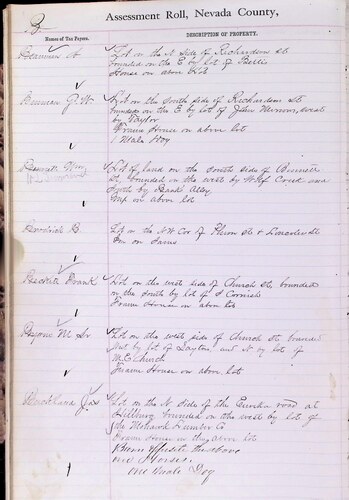 B
Assessment Roll, Nevada County,
Names of Tax Payers.
DESCRIPTION OF PROPERTY.
Lot on the N side of Richardson St
bounded on the E by lot of
House on above lot
G. W.
Lot on the South side of Richardson St
bounded on the E by lot of John west
by Taylor
Frame House on above lot
1 Male Dog
Bennett Wm
Lot of land on the South side of Bennett
St, bounded on the west by Wolf Creek and
by Bank Alley
on above lot
Broderick B.
Lot on the NW Cor of Plum St &
on Same
Frank
Lot on the west side of Church St, bounded
on the South by lot of S Cornish
Frame House on above lot
M. Sr
Lot on the west side of Church St bounded
by lot of and N by lot of
M.E. Church
Frame House on above lot
Jas
Lot on the N side of the Eureka road at
bounded on the west by lot of
the Mohawk Lumber Co
Frame House on the above lot
Barn opposite the above
Horses
one Male Dog